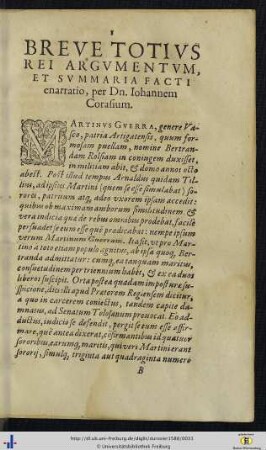 BREVE TOTIVS
REI ARGVMENTVM,
ET SVMMARIA FACTI
enarratio, per Dn. Iohannem
Corasium.
MARTINVS GVERRA, genere Va-
sco, patria Artigatensis, quum for-
mosam puellam, nomine Bertran-
dam Rolsiam in coniugem duxisset,
in militiam abit, & domo annos octo
abest. Post illud tempus Arnaldus quidam Til-
lius, ad ipsius Martini (quem se esse simulabat) so-
rorès, patruum atq, adeo vxorem ipsam accedit:
quibus ob maximam amborum similitudinem &
vera indicia quæ de rebus omnibus prodebat, facilè
persuadet se eum esse què prædicabat: nempe ipsum
verum Martinum Guerram. Ita fit, vt pro Mar-
tino à toto etiam populo agnitus, ab ipsa quoq, Ber-
tranda admittatur: cum eaq tanquam maritus,
consuetudinem per triennium habet, & ex ea duos
liberos suscipit. Orta postea quadam imposturæ su-
spicione, dica illi apud Prætorem Regænsem dicitur,
à quo in carcerem coniectus, tandem capite da-
mnatus, ad Senatum Tolosanum prouocat. Eò ad-
ductus, iudicio se defendit, pergit se eum esse affir-
mare, què antea dixerat, cōfirmantibus id quatuor
sororibus, earumq, maritis, qui veri Martini erant
sororij, simulq, triginta aut quadraginta numero
B
http://dl.ub.uni-freiburg.de/diglit/surowin1588/0033
© Universitätsbibliothek Freiburg